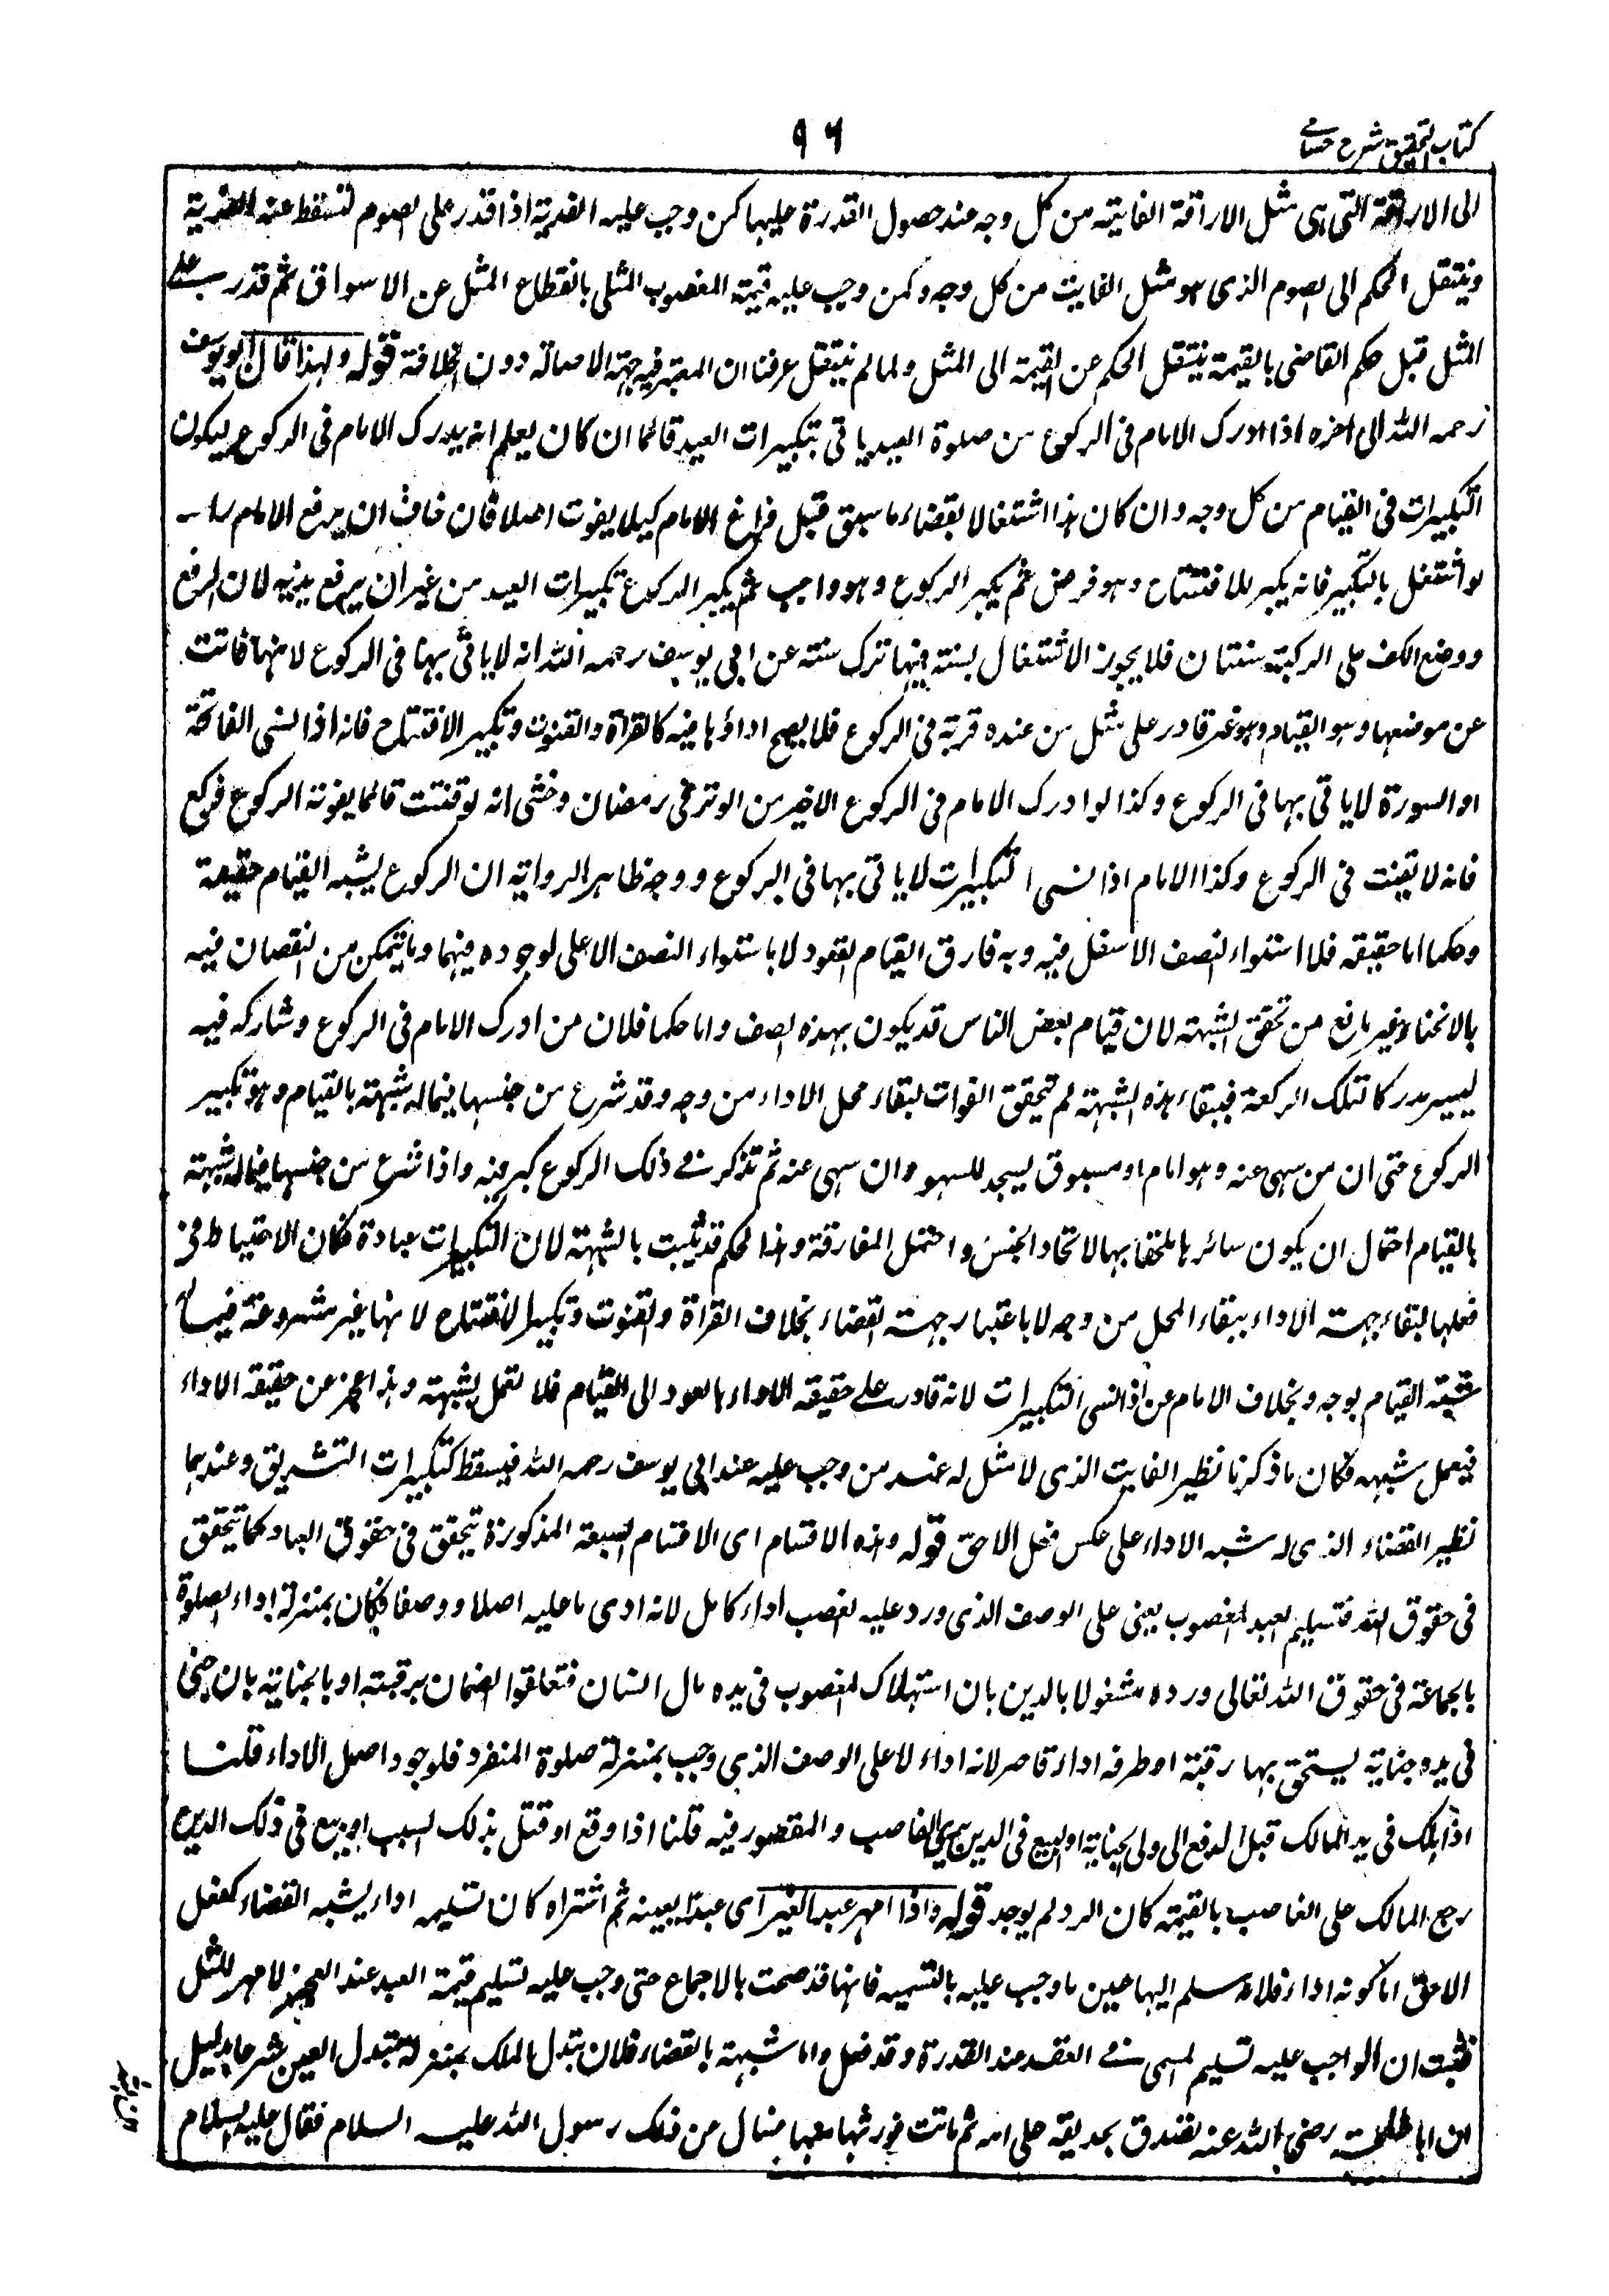 كتاب التحقيق شرح حسامى
٩٦
الى الاراقة التى هى مثل الاراقة الفايتة من كل وجه عند حصول القدرة عليها كمن وجب عليه الفدية اذا قدر على الصوم تسقط عنه الفدية
وينتقل الحكم الى الصوم الذى هو مثل الفايت من كل وجه وكمن وجب عليه قيمة المغصوب المثلى بانقطاع المثل عن الاسواق ثم قدر على
المثل قبل حكم القاضى بالقيمة ينتقل الحكم عن القيمة الى المثل ولما لم ينتقل عرفنا ان المعتبر فيه جهة الاصالة دون الخلافة قوله ولهذا قال ابو يوسف
رحمه الله الى اخره اذا ادرك الامام فى الركوع من صلوة العيد ياتى بتكبيرات العيد قائما ان كان يعلم انه يدرك الامام فى الركوع ليكون
التكبيرات فى القيام من كل وجه وان كان هذا اشتغالا بقضاء ما سبق قبل فراغ الامام كيلا يفوت اصلا فان خاف ان يرفع الامام راسه
لو اشتغل بالتكبير فانه يكبر للافتتاح وهو فرض ثم يكبر الركوع وهو واجب ثم يكبر الركوع تكبيرات العيد من غير ان يرفع يديه لان الرفع
ووضع الكف على الركبة سنتان فلا يجوز الاشتغال بسنة فيها ترك سنة عن ابى يوسف رحمه الله انه لا ياتى بها فى الركوع لانها فاتت
عن موضعها وهو القيام وهو غير قادر على مثل من عنده قربة فى الركوع فلا يصح اداؤها فيه كالقراة والقنوت وتكبير الافتتاح فانه اذا نسى الفاتحة
او السورة لا ياتى بها فى الركوع وكذا لو ادرك الامام فى الركوع الاخير من الوتر فى رمضان وخشى انه لو قنت قائما يفوته الركوع فركع
فانه لا يقنت فى الركوع وكذا الامام اذا نسى التكبيرات لا ياتى بها فى الركوع ووجه ظاهر الرواية ان الركوع يشبه القيام حقيقة
وحكما اما حقيقة فلاستواء النصف الاسفل فيه وبه فارق القيام القعود لا باستواء النصف الاعلى لوجوده فيهما وما يتمكن من النقصان فيه
بالانحناء غير مانع من تحقق الشبهة لان قيام بعض الناس قد يكون بهذه الصفة واما حكما فلان من ادرك الامام فى الركوع وشاركه فيه
يصير مدركا تلك الركعة فببقاء هذه الشبهة لم يتحقق الفوات لبقاء محل الاداء من وجه وقد شرع من جنسها فيما له شبهة بالقيام وهو تكبير
الركوع حتى ان من سهى عنه وهو امام او مسبوق يسجد للسهو وان سهى عنه ثم تذكر فى ذلك الركوع كبر فيه واذا شرع من جنسها فيما له شبهة
بالقيام احتمل ان يكون سائرها ملحقا بها لاتحاد الجنس واحتمل المفارقة وهذا الحكم قد يثبت بالشبهة لان التكبيرات عبادة فكان الاحتياط فى
فعلها لبقاء جهة الاداء ببقاء المحل من وجه لا باعتبار جهة القضاء بخلاف القراة والقنوت وتكبير الافتتاح لانها غير مشروعة فيما له
شبهة القيام بوجه وبخلاف الامام اذا نسى التكبيرات لانه قادر على حقيقة الاداء بالعود الى القيام فلا تعمل بشبهة وهذا عجز عن حقيقة الاداء
فيعمل بشبهه فكان ما ذكرنا نظير الفايت الذى لا مثل له عند من وجب عليه عند ابى يوسف رحمه الله فيسقط كتكبيرات التشريق وعندهما
نظير القضاء الذى له شبه الاداء على عكس فعل اللاحق قوله وهذه الاقسام اى الاقسام السبعة المذكورة تتحقق فى حقوق العباد كما تتحقق
فى حقوق الله فتسليم العبد المغصوب يعنى على الوصف الذى ورد عليه الغصب اداء كامل لانه ادى ما عليه اصلا ووصفا فكان بمنزلة اداء الصلوة
بالجماعة فى حقوق الله تعالى ورده مشغولا بالدين بان استهلاك المغصوب فى يده مال انسان فتعلقوا الضمان برقبته او بالجناية بان جنى
فى يده جناية يستحق بها رقبته او طرفه اداء قاصر لانه اداء لا على الوصف الذى وجب بمنزلة صلوة المنفرد فلوجود اصل الاداء قلنا
اذا هلك فى يد المالك قبل الدفع الى ولى الجناية او البيع فى الدين برئ الغاصب و القصور فيه قلنا اذا دفع او قتل بذلك السبب او بيع فى ذلك الدين
رجع المالك على الغاصب بالقيمة كان الرد لم يوجد قوله واذا امهر عبد الغير اى عبدا بعينه ثم اشتراه كان تسليمه اداء يشبه القضاء كفعل
اللاحق اما كونه اداء فلانه سلم اليها عين ما وجب عليه بالتسمية فانها قد صحت بالاجماع حتى وجب عليه تسليم قيمة العبد عند العجز لا مهر المثل
فثبت ان الواجب عليه تسليم المسمى فى العقد عند القدرة وقد فعل واما شبهة بالقضاء فلان تبدل الملك بمنزلة تبدل العين شرعا بدليل
ان ابا طلحة رضى الله عنه تصدق بحديقة على امه ثم ماتت فورثها منها فسال عن ذلك رسول الله عليه السلام فقال عليه السلام